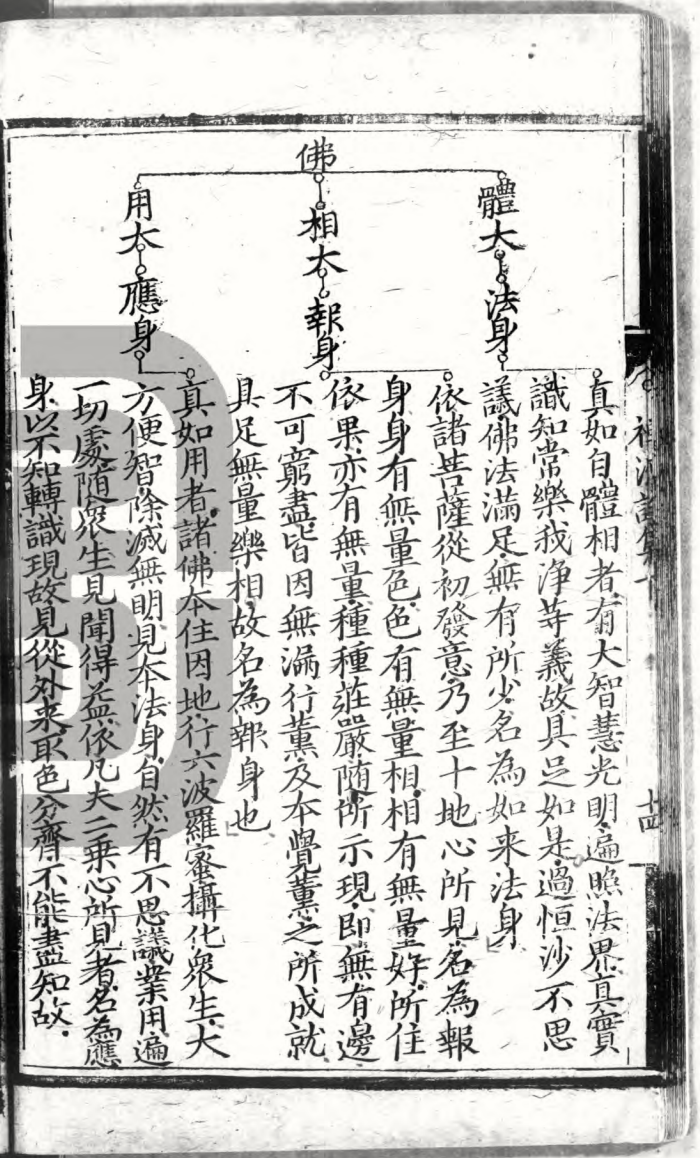 佛
體大 法身
相大 報身
用大 應身
真如自體相者有大智慧光明遍照法界真實
識知常樂我淨等義故具足如是過恒沙不思
議佛法滿足無有所少名為如来法身
依諸菩薩從初發意乃至十地心所見名為報
身身有無量色色有無量相相有無量好所住
依果亦有無量種種莊嚴随所示現即無有邊
不可窮盡皆因無漏行薰及本覺薰之所成就
具足無量樂相故名為報身也
真如用者諸佛本住因地行六波羅蜜攝化衆生大
方便智除滅無明見本法身自然有不思議業用遍
一切處随衆生見聞得益依凡夫二乗心所見者名為應
身以不知轉識現故見從外来取色分齊不能盡知故